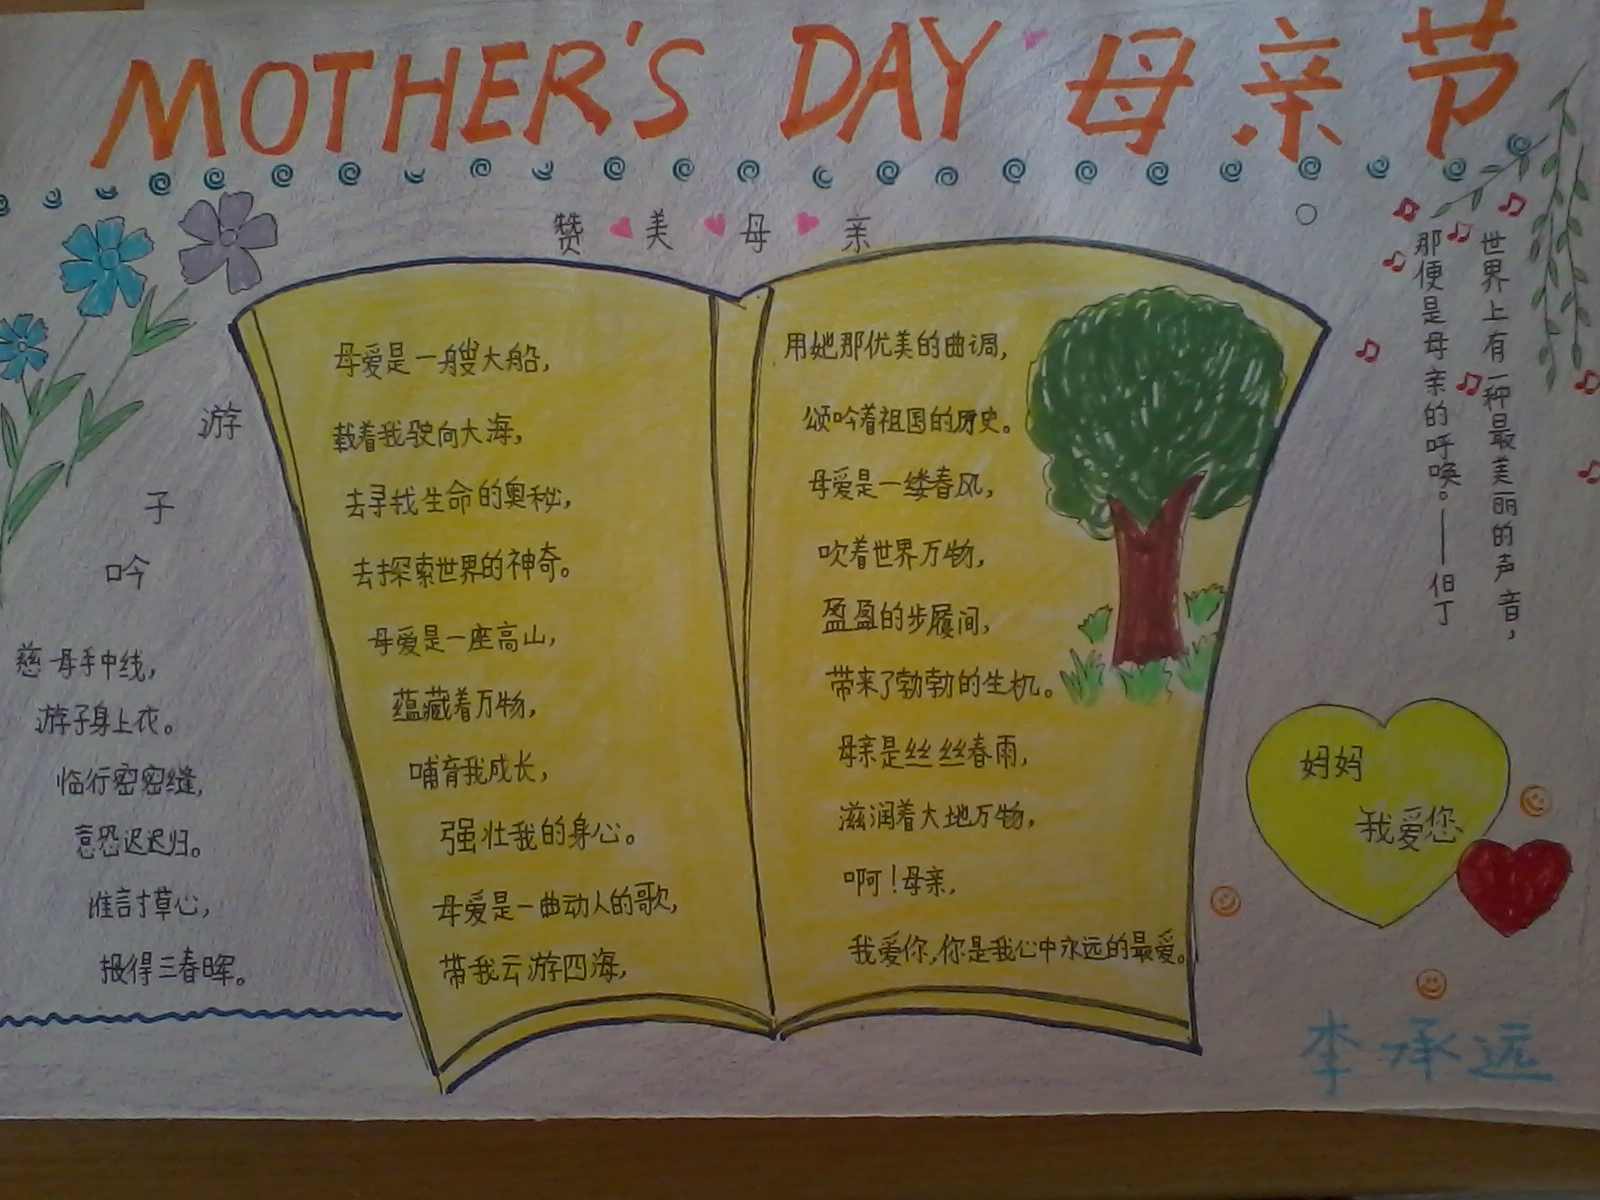 MOTHER'S DAY 母亲节
赞美母亲
游子吟
慈母手中线，
游子身上衣。
临行密密缝，
意恐迟迟归。
谁言寸草心，
报得三春晖。
母爱是一艘大船，
载着我驶向大海，
去寻找生命的奥秘，
去探索世界的神奇。
母爱是一座高山，
蕴藏着万物，
哺育我成长，
强壮我的身心。
母爱是一曲动人的歌，
带我云游四海，
用她那优美的曲调，
颂吟着祖国的历史。
母爱是一缕春风，
吹着世界万物，
盈盈的步履间，
带来了勃勃的生机。
母亲是丝丝春雨，
滋润着大地万物，
啊！母亲，
我爱你，你是我心中永远的最爱。
世界上有一种最美丽的声音，
那便是母亲的呼唤。——但丁
妈妈
我爱您
李承远